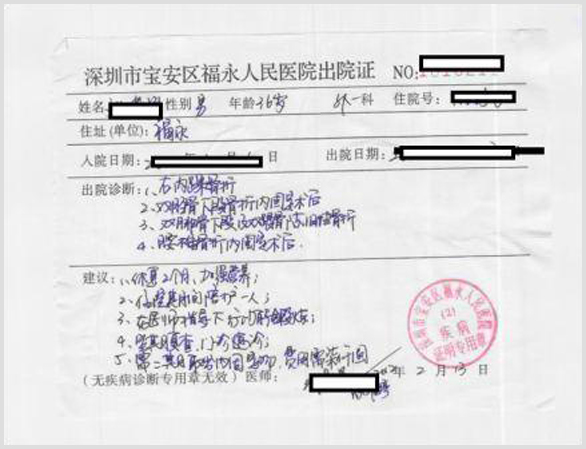 深圳市宝安区福永人民医院出院证 NO:
姓名: 性别 男 年龄 36岁 外一科 住院号:
住址(单位): 福永
入院日期: 日 出院日期:
出院诊断: 1、右内踝骨折
2、双胫骨下段骨折内固定术后
3、双腓骨下段及双踝骨陈旧性骨折
4、腰椎骨折内固定术后
建议: 1、休息2个月、加强营养;
2、住院期间陪护一人;
3、在医师指导下行功能锻炼;
4、定期复查、门诊随诊;
5、第二期取出内固定 费用需
(无疾病诊断专用章无效) 医师: 年 2 月 13 日
深圳市宝安区福永人民医院
(2)
疾病
证明专用章